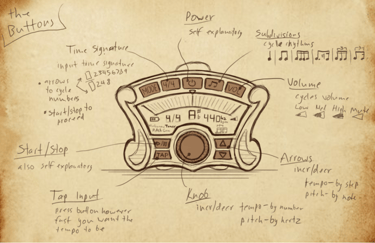 the
Buttons
Power
self explanatory
Subdivisions
cycle rhythms
Time Signature
input time signature
• arrows
to cycle
numbers
• start/stop to
proceed
Volume
cycles volume
Low Med High Mute
4/4 A 440
Start/Stop
also self explanatory
Arrows
incr/decr
tempo-by step
pitch-by note
Tap Input
press button however
fast you want the
tempo to be
Knob
incr/decr tempo-by number
pitch-by hertz